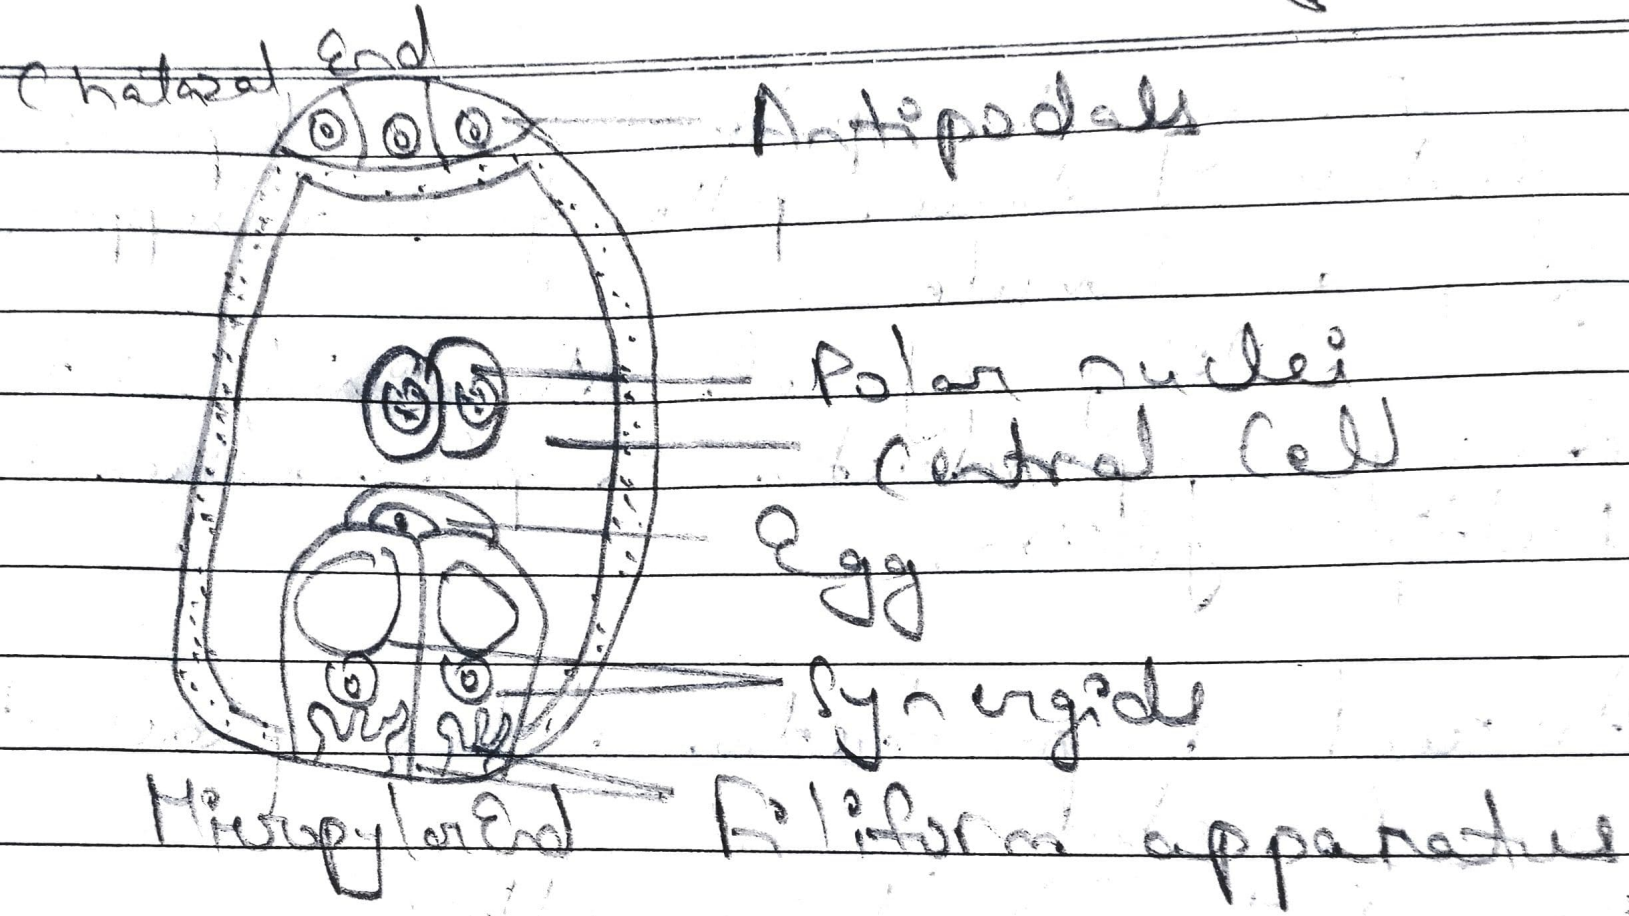 Chalazal End
Antipodals
Polar nuclei
Central Cell
Egg
Synergids
Micropylar End
Filiform apparatus